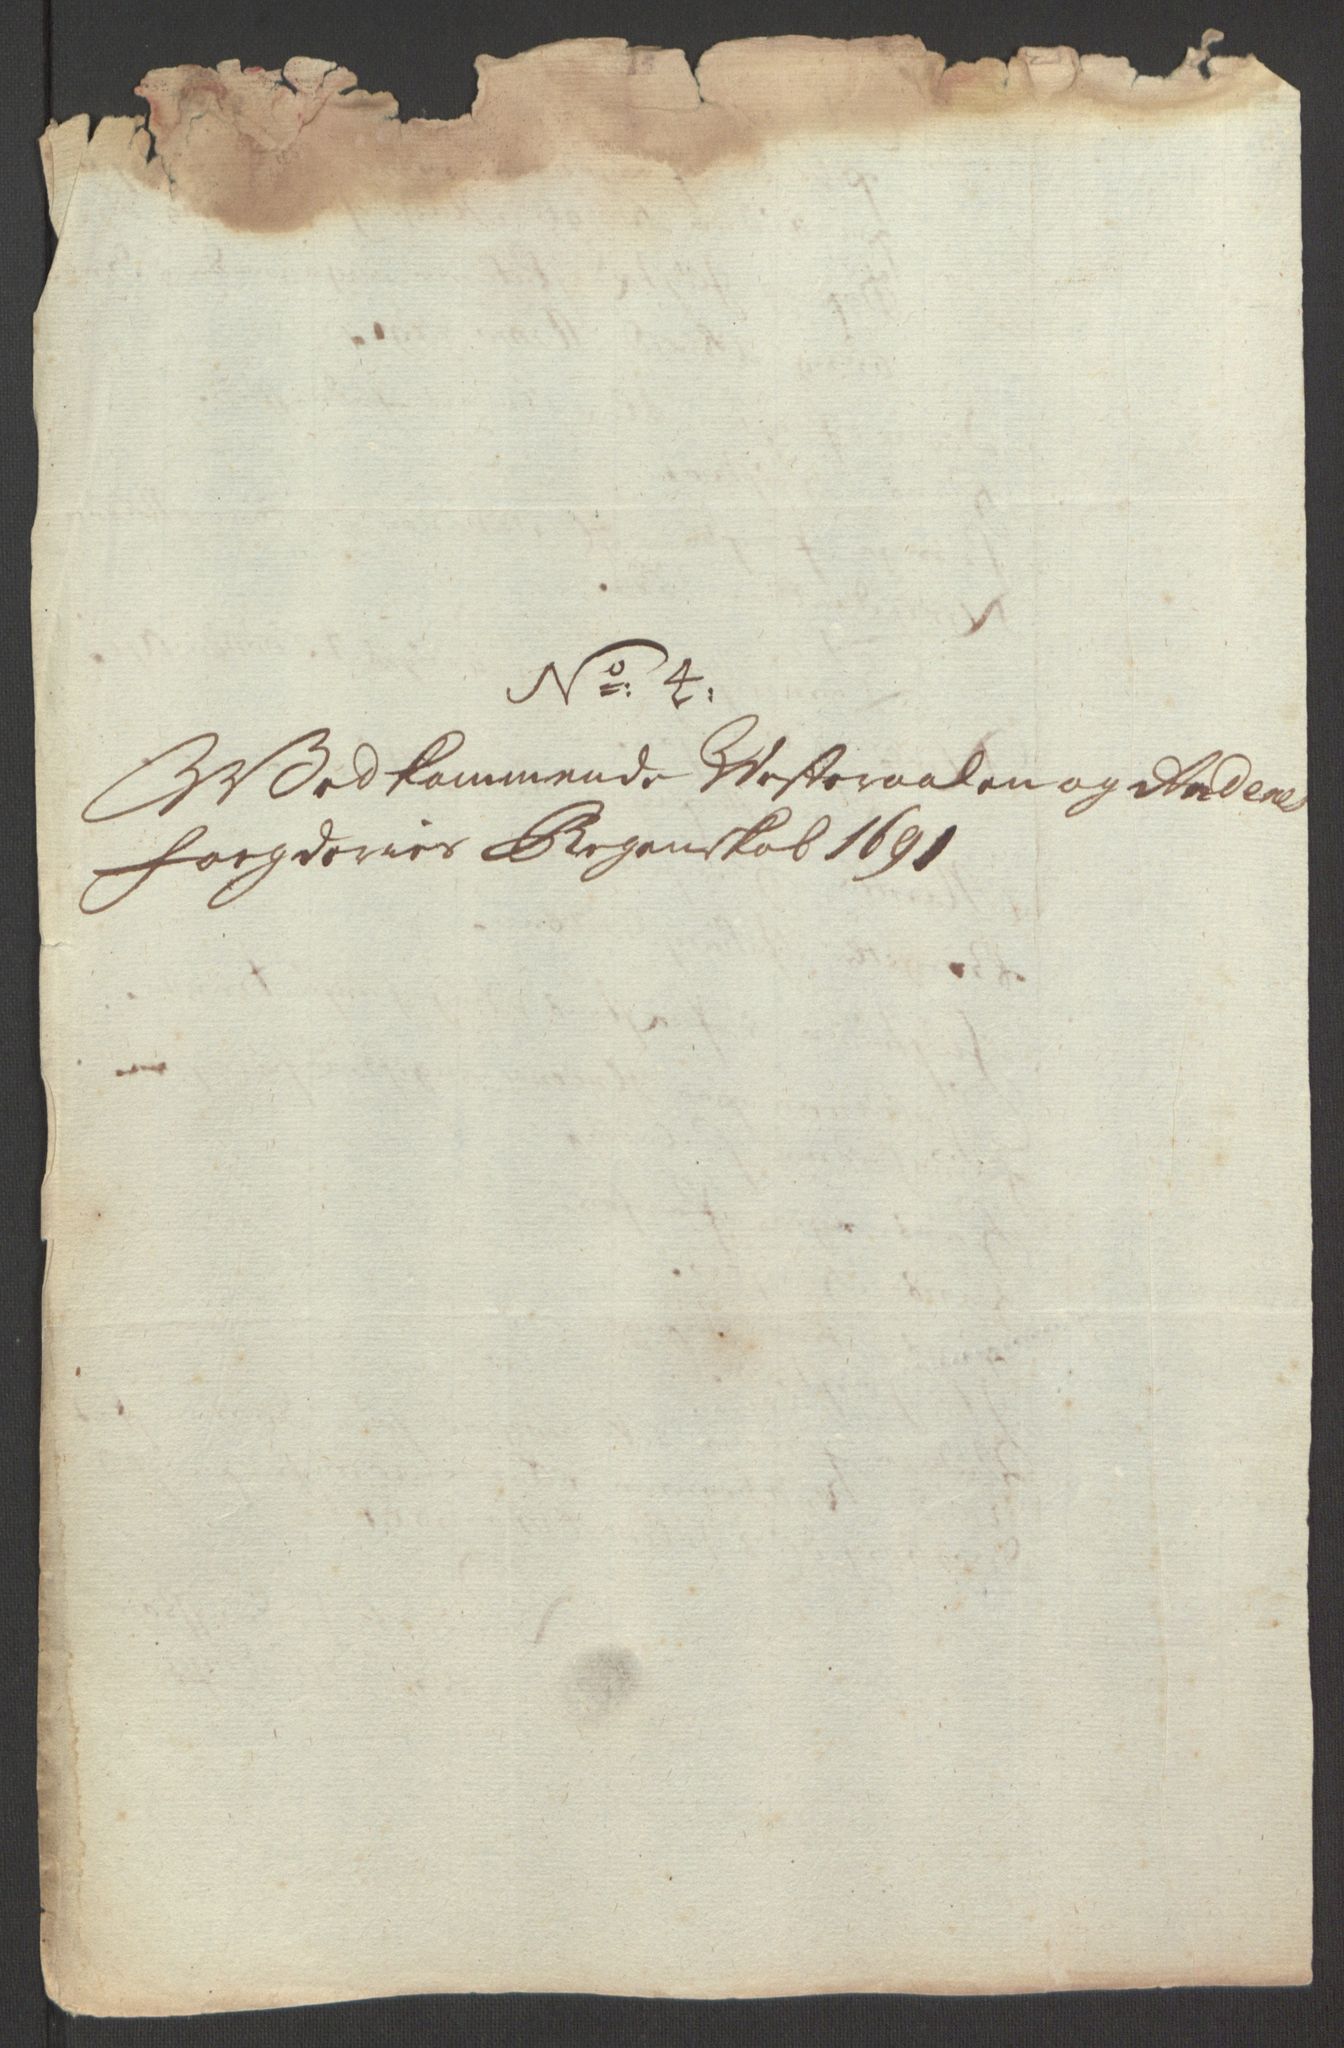 No: 4:
Wedkommende Westeraalen og Andenes
foegderies Regenskab 1691